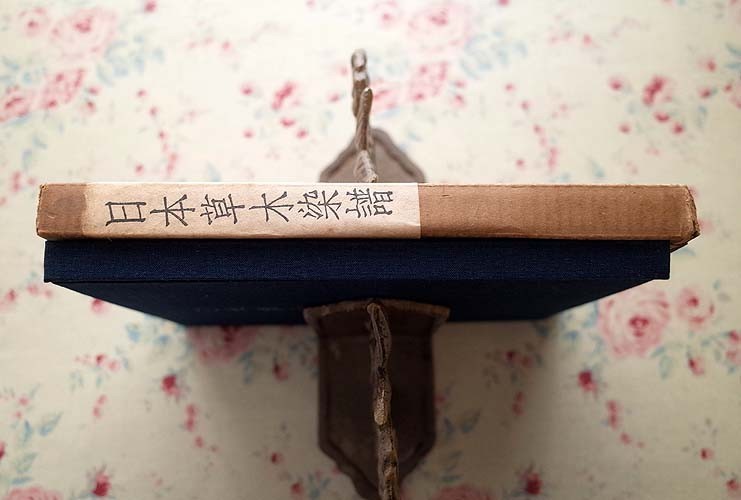 日本草木染譜